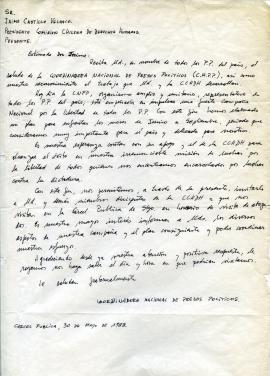 SR.
JAIME CASTILLO VELASCO.
PRESIDENTE COMISION CHILENA DE DERECHOS HUMANOS
PRESENTE.
Estimado don Jaime:
Reciba Ud., en nombre de todos los P.P. del país, el
saludo de la COORDINADORA NACIONAL DE PRESOS POLITICOS (C.N.P.P.), así como
nuestro reconocimiento al trabajo que Ud. y la CCHDH desarrollan.
Hoy día la CNPP, organismo amplio y unitario, representativo de
todos los P.P. del país, está empeñada en impulsar una fuerte Campaña
Nacional por la libertad de todos los P.P. Con este fin hemos elaborado
un plan para los meses de Junio a Septiembre, período que
consideramos muy importante para el país y delicado para nosotros.
Es nuestra esperanza contar con su apoyo, y el de la CCHDH para
el éxito en nuestra irrenunciable misión de luchar por
la libertad de todos quienes nos encontramos encarcelados por luchar
contra la dictadura.
Con este fin, nos permitimos, a través de la presente, invitarle
a Ud. y demás miembros de la CCHDH a que nos
visiten en la Cárcel Pública de Stgo. en horario de visita de
Es nuestro mayor interés informar a Uds. los diversos
aspectos de nuestra campaña y el plan consiguiente, y poder coordinar
nuestro esfuerzo.
Agradeciendo desde ya vuestra atención y positiva respuesta, le
rogamos nos haga saber el día y hora en que podrían visitarnos.
Le saludan fraternalmente
COORDINADORA NACIONAL DE PRESOS POLITICOS.
CARCEL PUBLICA, 30 DE MAYO DE 1988.